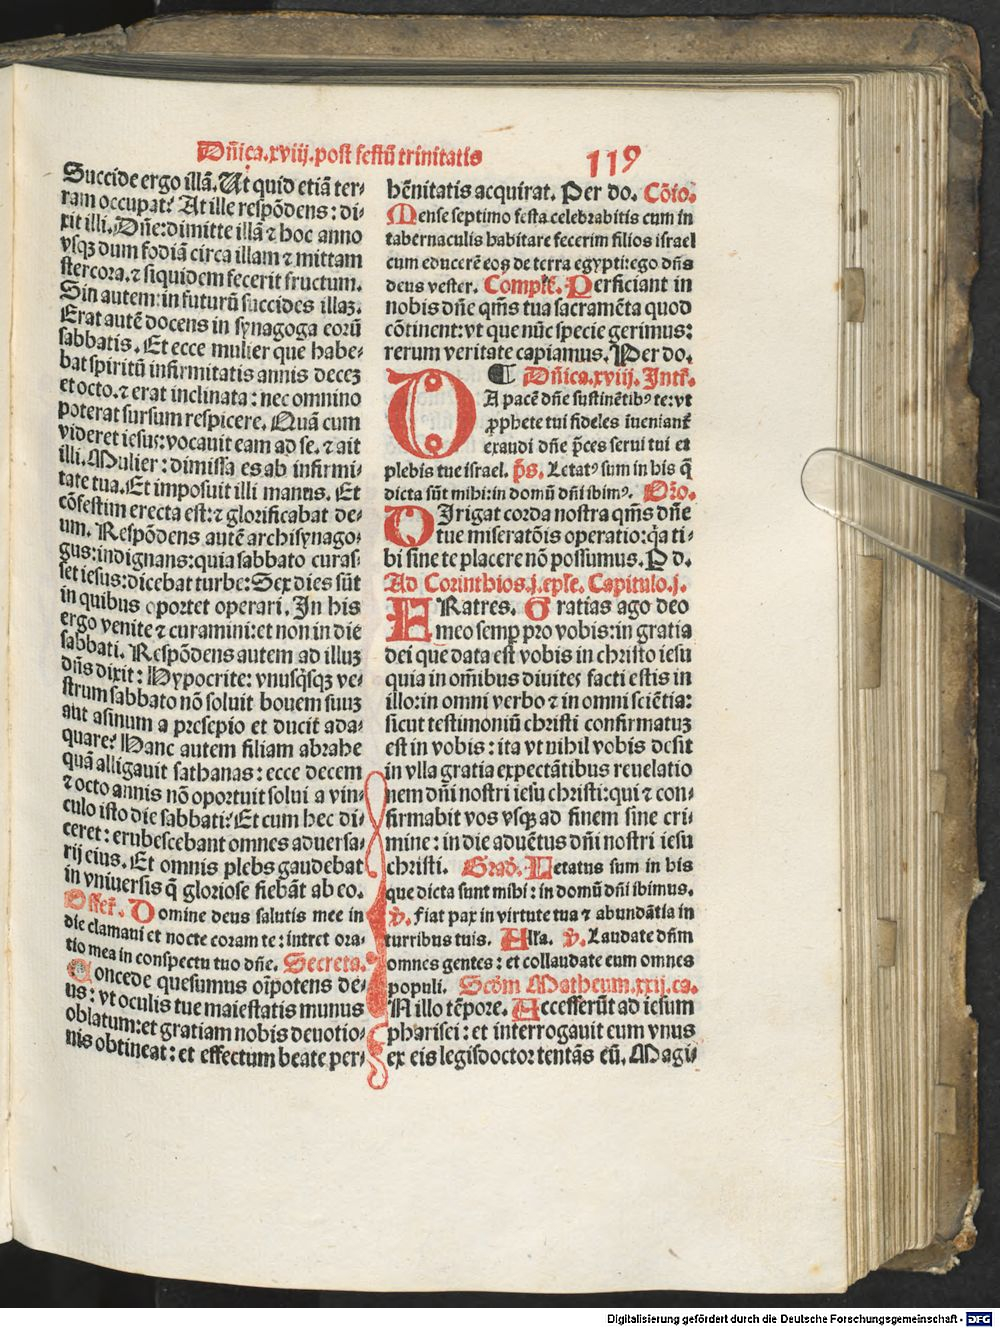 Dñica.xviij.post festū trinitatis
119
Succide ergo illā. Ut quid etiā ter⸗
ram occupat? At ille respōdens: di⸗
xit illi. Dñe: dimitte illā ⁊ hoc anno
vsqꝫ dum fodiā circa illam ⁊ mittam
stercora. ⁊ siquidem fecerit fructum.
Sin autem: in futurū succides illaꝫ.
Erat autē docens in synagoga eorū
sabbatis. Et ecce mulier que habe⸗
bat spiritū infirmitatis annis deceꝫ
et octo. ⁊ erat inclinata: nec omnino
poterat sursum respicere. Quā cum
videret iesus: vocauit eam ad se. ⁊ ait
illi. Mulier: dimissa es ab infirmi⸗
tate tua. Et imposuit illi manus. Et
cōfestim erecta est: ⁊ glorificabat de⸗
um. Respōdens autē archisynago⸗
gus: indignans: quia sabbato curas⸗
set iesus: dicebat turbe: Sex dies sūt
in quibus oportet operari. In his
ergo venite ⁊ curamini: et non in die
sabbati. Respōdens autem ad illuꝫ
dñs dixit: Hypocrite: vnusq̇sqꝫ ve⸗
strum sabbato nō soluit bouem suuꝫ
aut asinum a presepio et ducit ada⸗
quare? Hanc autem filiam abrahe
quā alligauit sathanas: ecce decem
⁊ octo annis nō oportuit solui a vin⸗
culo isto die sabbati? Et cum hec di⸗
ceret: erubescebant omnes aduersa⸗
rij eius. Et omnis plebs gaudebat
in vniuersis q̄ gloriose fiebāt ab eo.
Offeꝛt. Domine deus salutis mee in
die clamaui et nocte coram te: intret ora⸗
tio mea in conspectu tuo dñe. Secreta.
Concede quesumus oīpotens de⸗
us: vt oculis tue maiestatis munus
oblatum: et gratiam nobis deuotio⸗
nis obtineat: et effectum beate per⸗
hēnitatis acquirat. Per do. Cōio.
Mense septimo festa celebrabitis cum in
tabernaculis habitare fecerim filios israel
cum educerē eos de terra egypti: ego dñs
deus vester. Compleꝛ. Perficiant in
nobis dñe qm̄s tua sacramēta quod
cōtinent: vt que nūc specie gerimus:
rerum veritate capiamus. Per do.
¶ Dñica.xviij. Intꝛ.
DA pacē dñe sustinētibꝰ te: vt
ꝓphete tui fideles īueniant̄
exaudi dñe p̄ces serui tui et
plebis tue israel. p̄s. Letatꝰ sum in his q̄
dicta sūt mihi: in domū dñi ibimꝰ. Oꝛo.
DIrigat corda nostra qm̄s dñe
tue miseratōis operatio: q̇a ti⸗
bi sine te placere nō possumus. P d.
Ad Corinthios.j.eple. Capitulo.j.
FRatres. Gratias ago deo
meo semꝑ pro vobis: in gratia
dei que data est vobis in christo iesu
quia in om̄ibus diuites facti estis in
illo: in omni verbo ⁊ in omni sciētia:
sicut testimoniū christi confirmatuꝫ
est in vobis: ita vt nihil vobis desit
in vlla gratia expectātibus reuelatio
nem dñi nostri iesu christi: qui ⁊ con⸗
firmabit vos vsqꝫ ad finem sine cri⸗
mine: in die aduētus dñi nostri iesu
christi. Grad. Letatus sum in his
que dicta sunt mihi: in domū dñi ibimus.
℣. Fiat pax in virtute tua ⁊ abundātia in
turribus tuis. Alla. ℣. Laudate dñm
omnes gentes: et collaudate eum omnes
populi. Scd̄m Matheum.xxij.ca.
IN illo tēpore. Accesserūt ad iesum
pharisei: et interrogauit eum vnus
ex eis legisdoctor tentās eū. Magi⸗
Digitalisierung gefördert durch die Deutsche Forschungsgemeinschaft - DFG